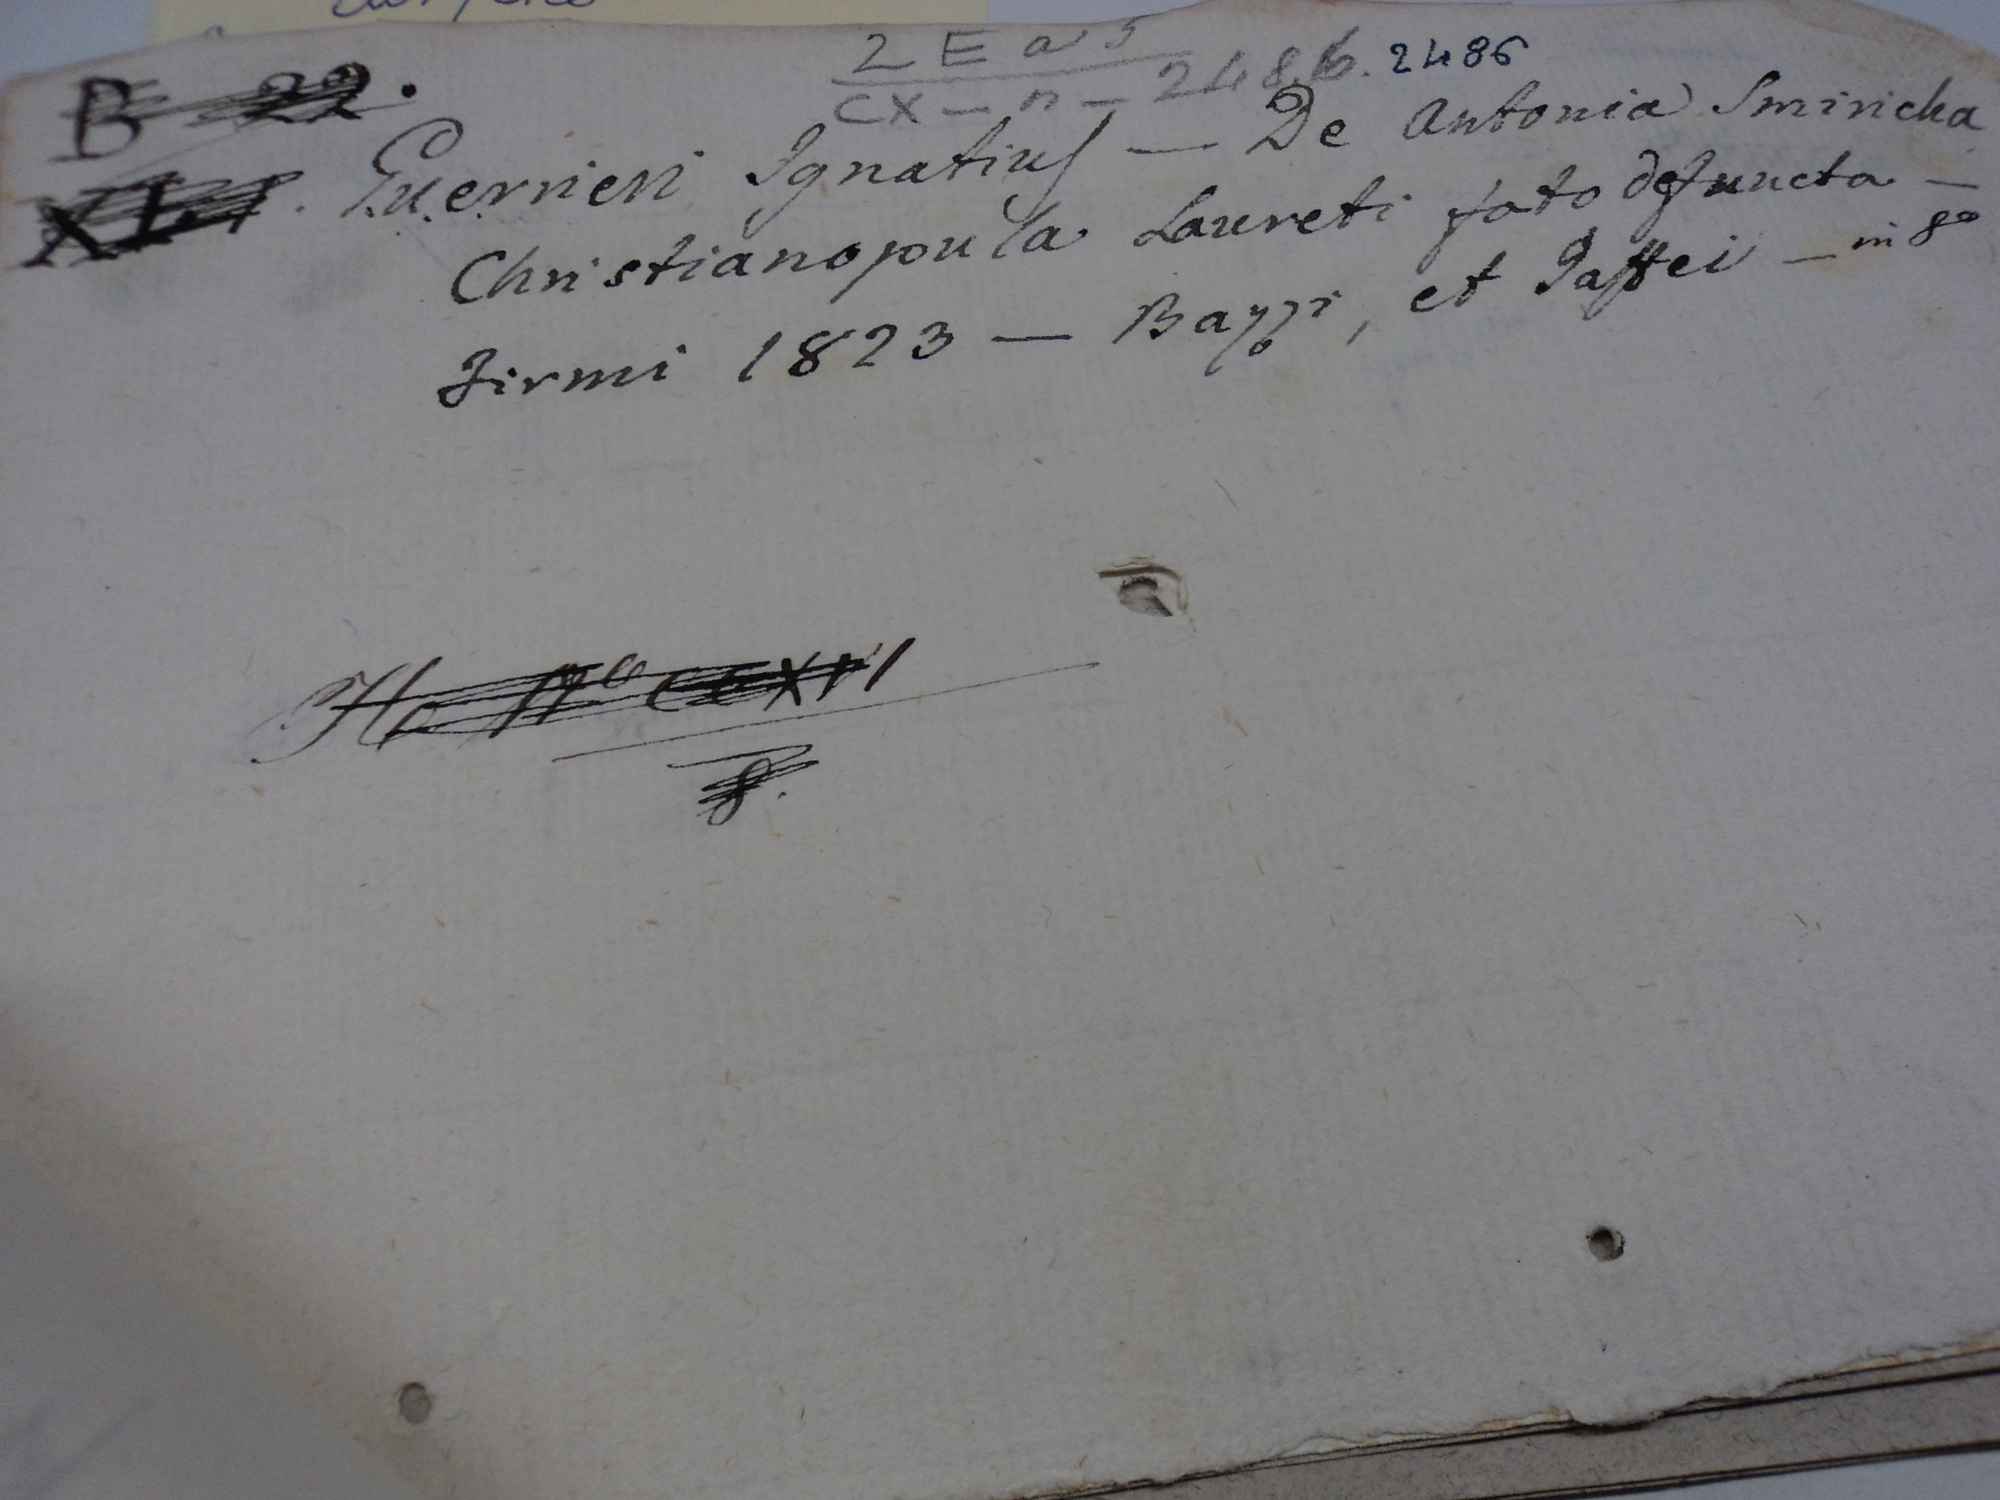 2 E a 5
B 22.
CX - n - 2486. 2486
XLI. Guerrieri Ignatius — De Antonia Smiricha
Christianopula Laureti fato defuncta —
Firmi 1823 — Bazzi, et Paffei — in 8º
Ha Nº CCXVI
8.